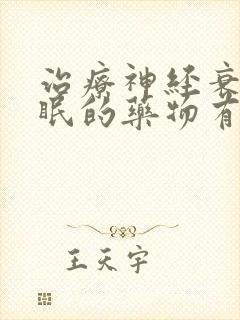 治療神経衰
眠的藥物有
王天宇